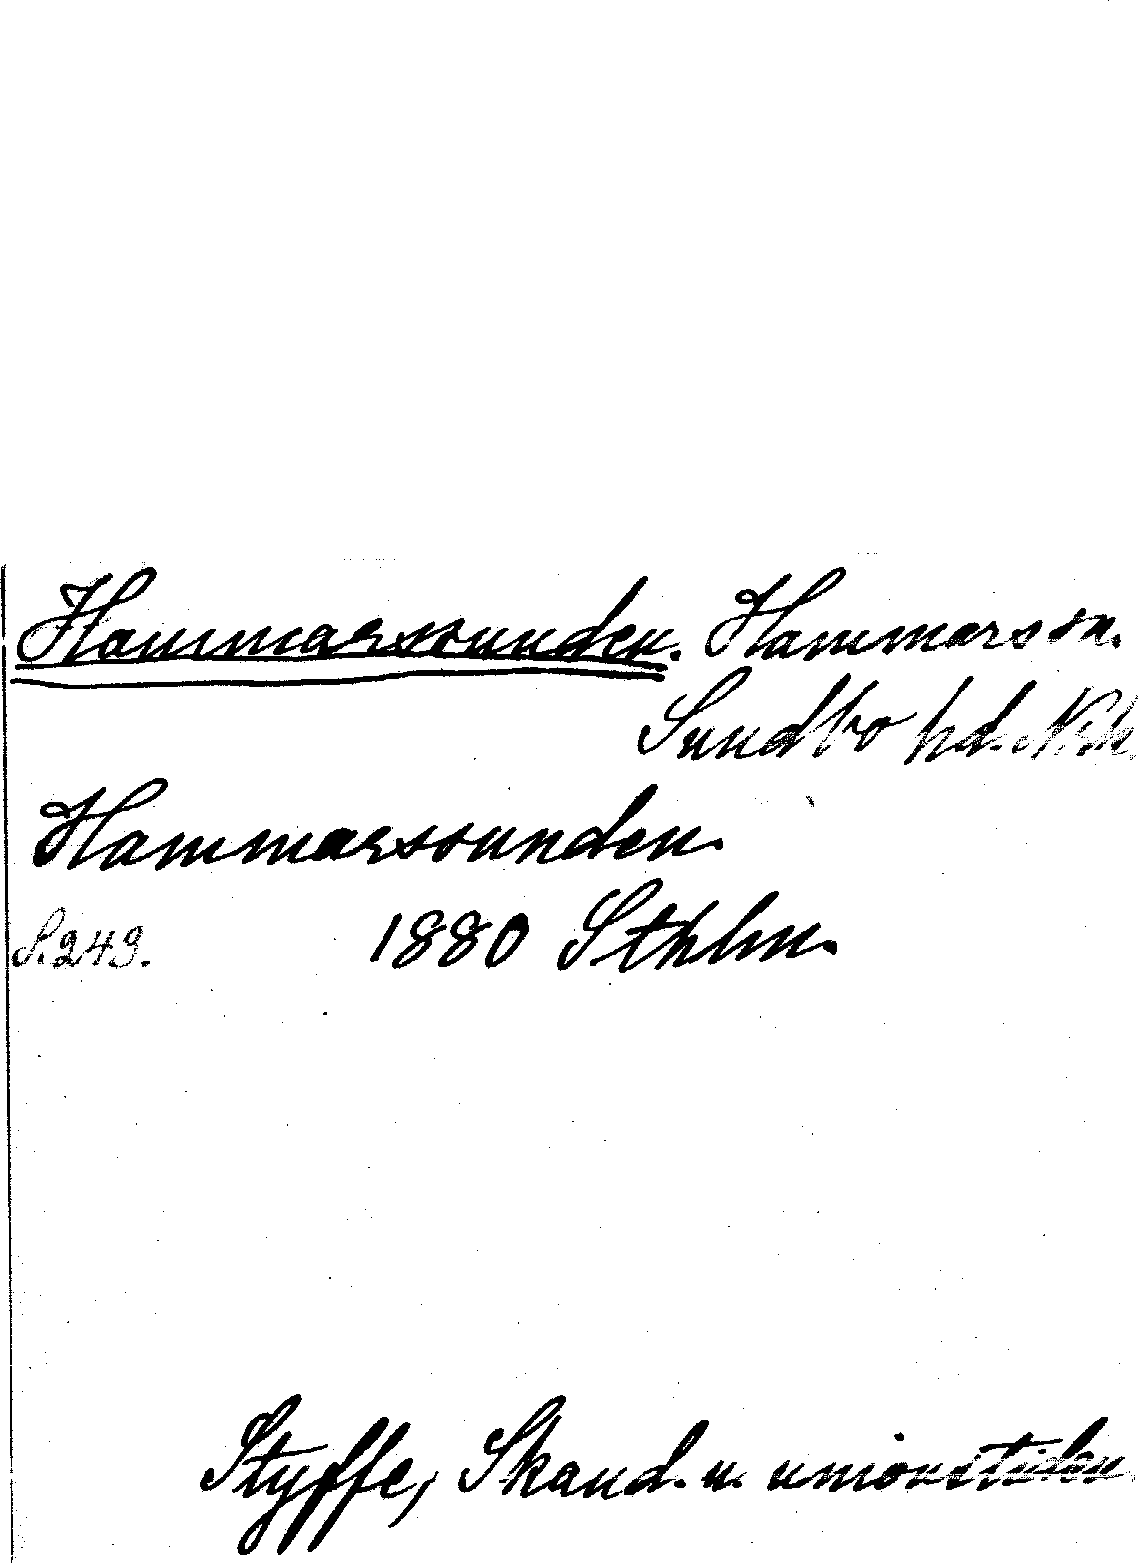 Hammarsunden. Hammars sn.
Sundbo hd. Nke
Hammarsunden.
S. 249. 1880 Sthlm.
Styffe, Skand. u. unionstiden.